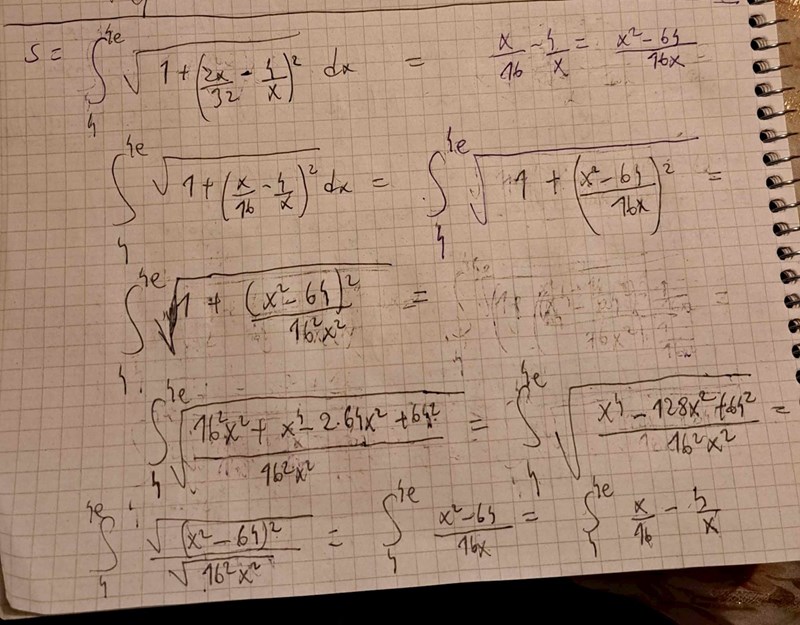 S = ∫_4^{4e} √(1 + (2x/32 - 4/x)²) dx = x/16 - 4/x = x² - 64/16x =
∫_4^{4e} √(1 + (x/16 - 4/x)²) dx = ∫_4^{4e} √(1 + (x² - 64/16x)²) =
∫_4^{4e} √(1 + (x² - 64)²/16²x²) = =
∫_4^{4e} √(16²x² + x⁴ - 2·64x² + 64²/16²x²) = ∫_4^{4e} √(x⁴ - 128x² + 64²/16²x²) =
∫_4^{4e} √(x² - 64)²/√16²x² = ∫_4^{4e} x² - 64/16x = ∫_4^{4e} x/16 - 4/x